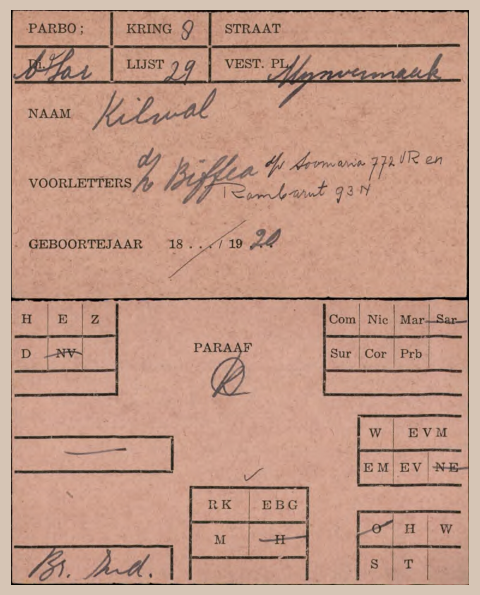 PARBO; KRING 8 STRAAT
LIJST 29 VEST. PL.
NAAM Kilwal
VOORLETTERS d/v Soomaria 772 VR en
Rambarut 93 H
GEBOORTEJAAR 18 . . . / 19 20
H E Z
D NV
PARAAF
Com Nic Mar Sar
Sur Cor Prb
W EVM
EM EV NE
RK EBG
M H
O H W
S T
Br. Ind.